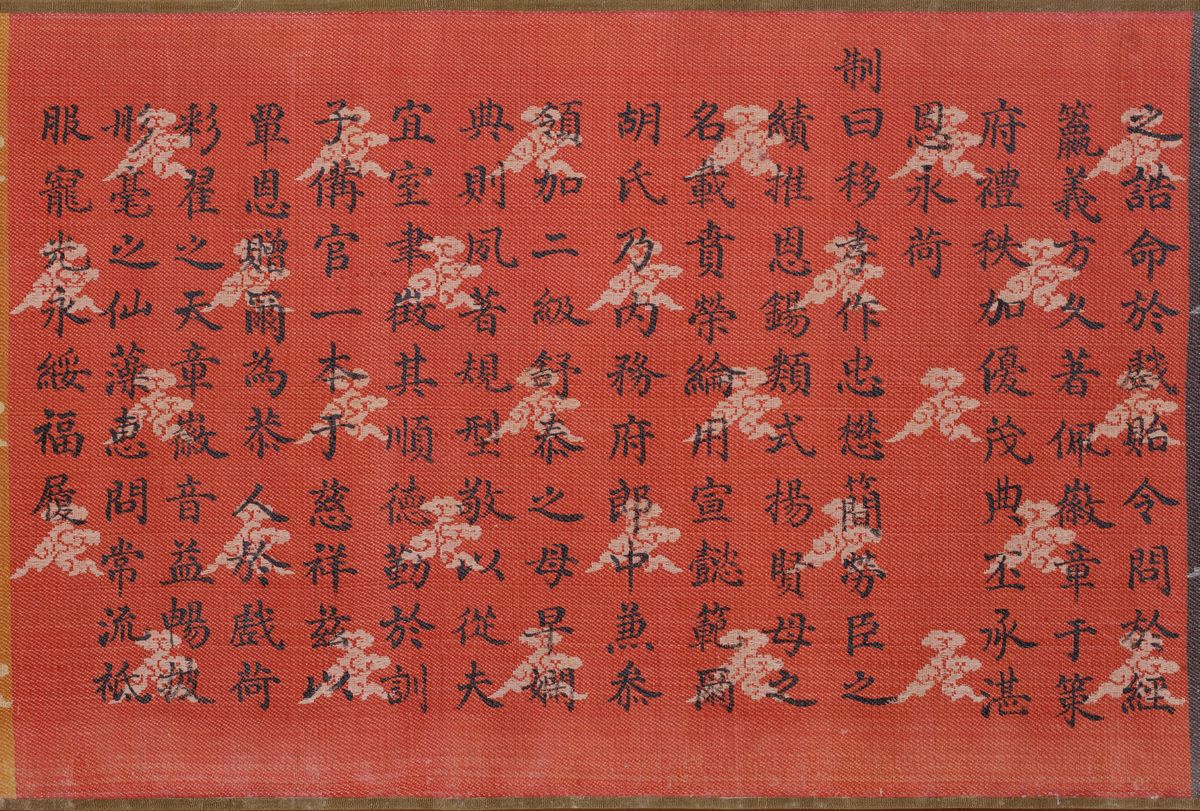 之誥命於戲貽令問於經
籯義方久著佩徽章于策
府禮秩加優茂典丕承湛
恩永荷
制曰移孝作忠懋簡勞臣之
績推恩錫類式揚賢母之
名載賁榮綸用宣懿範爾
胡氏乃内務府郎中兼叅
領加二級舒泰之母早嫻
典則夙著規型敬以從夫
宜室聿徵其順德勤於訓
子備官一本于慈祥茲以
覃恩贈爾為恭人於戲荷
彩翟之天章徽音益暢披
彤毫之仙藻惠問常流祗
服寵光永綏福履